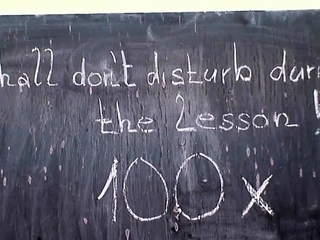 hall don't disturb dur
the Lesson!
100x